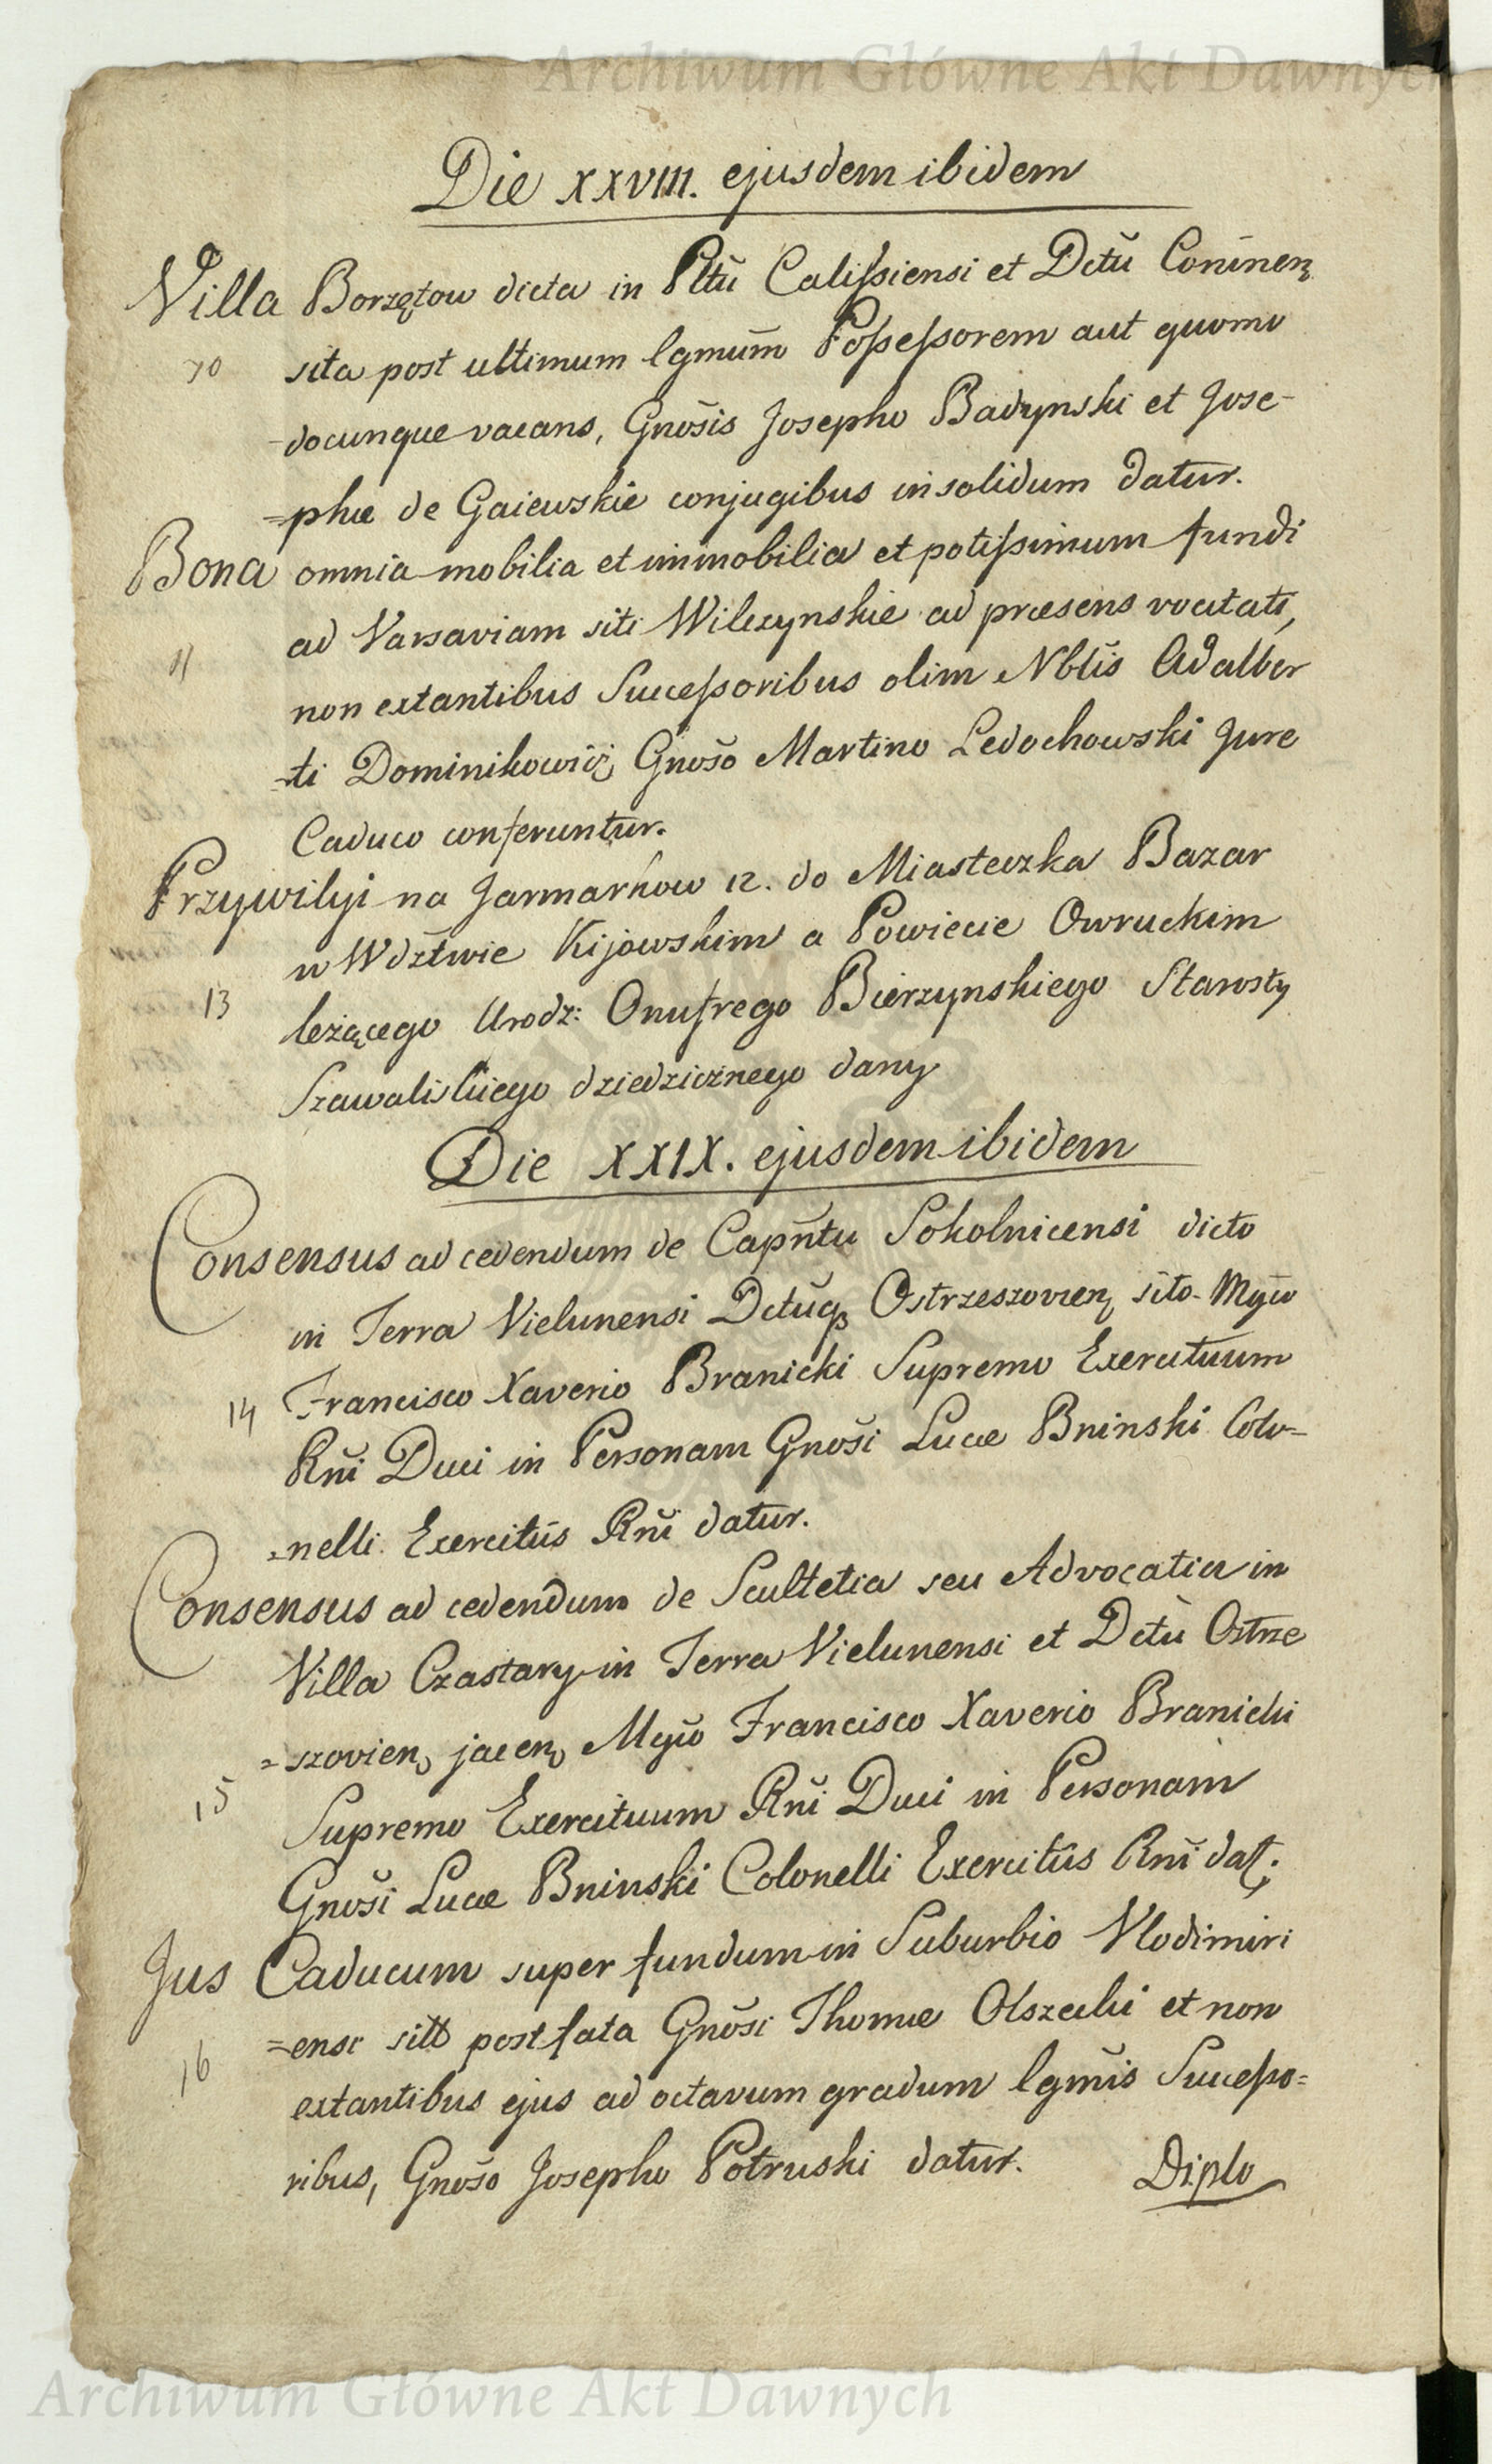 Archiwum Główne Akt Dawnych
Die XXVIII. ejusdem ibidem
Villa Borzętow dicta in Pltũ Calissiensi et Dctũ Coninen.
10 sita post ultimum lgmum̃ Possessorem aut quomo
-docunque vacans, Gnosis Josepho Badynski et Jose-
=phæ de Gaiewskie conjugibus in solidum datur.
Bona omnia mobilia et immobilia et potissimum fundi
ad Varsaviam siti Wilczynskie ad præsens vocitati,
11 non extantibus Successoribus olim Nbłis Adalber
-ti Dominikowicz, Gnoso Martino Ledochowski Jure
Caduco conferuntur.
Przywilyi na Jarmarkow 12. do Miasteczka Bazar
w Wdztwie Kijowskim a Powiecie Owruckim
13 leżącego Urodz: Onufrego Bierzynskiego Starosty
Szawaliskiego dziedzicznego dany
Die XXIX. ejusdem ibidem
Consensus ad cedendum de Capñtu Sokolnicensi dicto
in Terra Vielunensi Dctũq3 Ostrzeszovien, sito Mgw̃o
14 Francisco Xaverio Branicki Supremo Exercituum
Rñi Duci in Personam Gnosi Lucæ Bninski Colo=
=nelli Exercitũs Rñi datur.
Consensus ad cedendum de Scultetia seu Advocatia in
Villa Czastary in Terra Vielunensi et Dctũ Ostrze
=szovien, jacen, Mgw̃o Francisco Xaverio Branicki
15 Supremo Exercituum Rñi Duci in Personam
Gnosi Lucæ Bninski Colonelli Exercitũs Rñi dat;
Jus Caducum super fundum in Suburbio Vlodimiri
=ensi sitt post fata Gnosi Thomæ Olszecki et non
16 extantibus ejus ad octavum gradum lgmis Successo=
ribus, Gnoso Josepho Potruski datur.
Diplo
Archiwum Główne Akt Dawnych